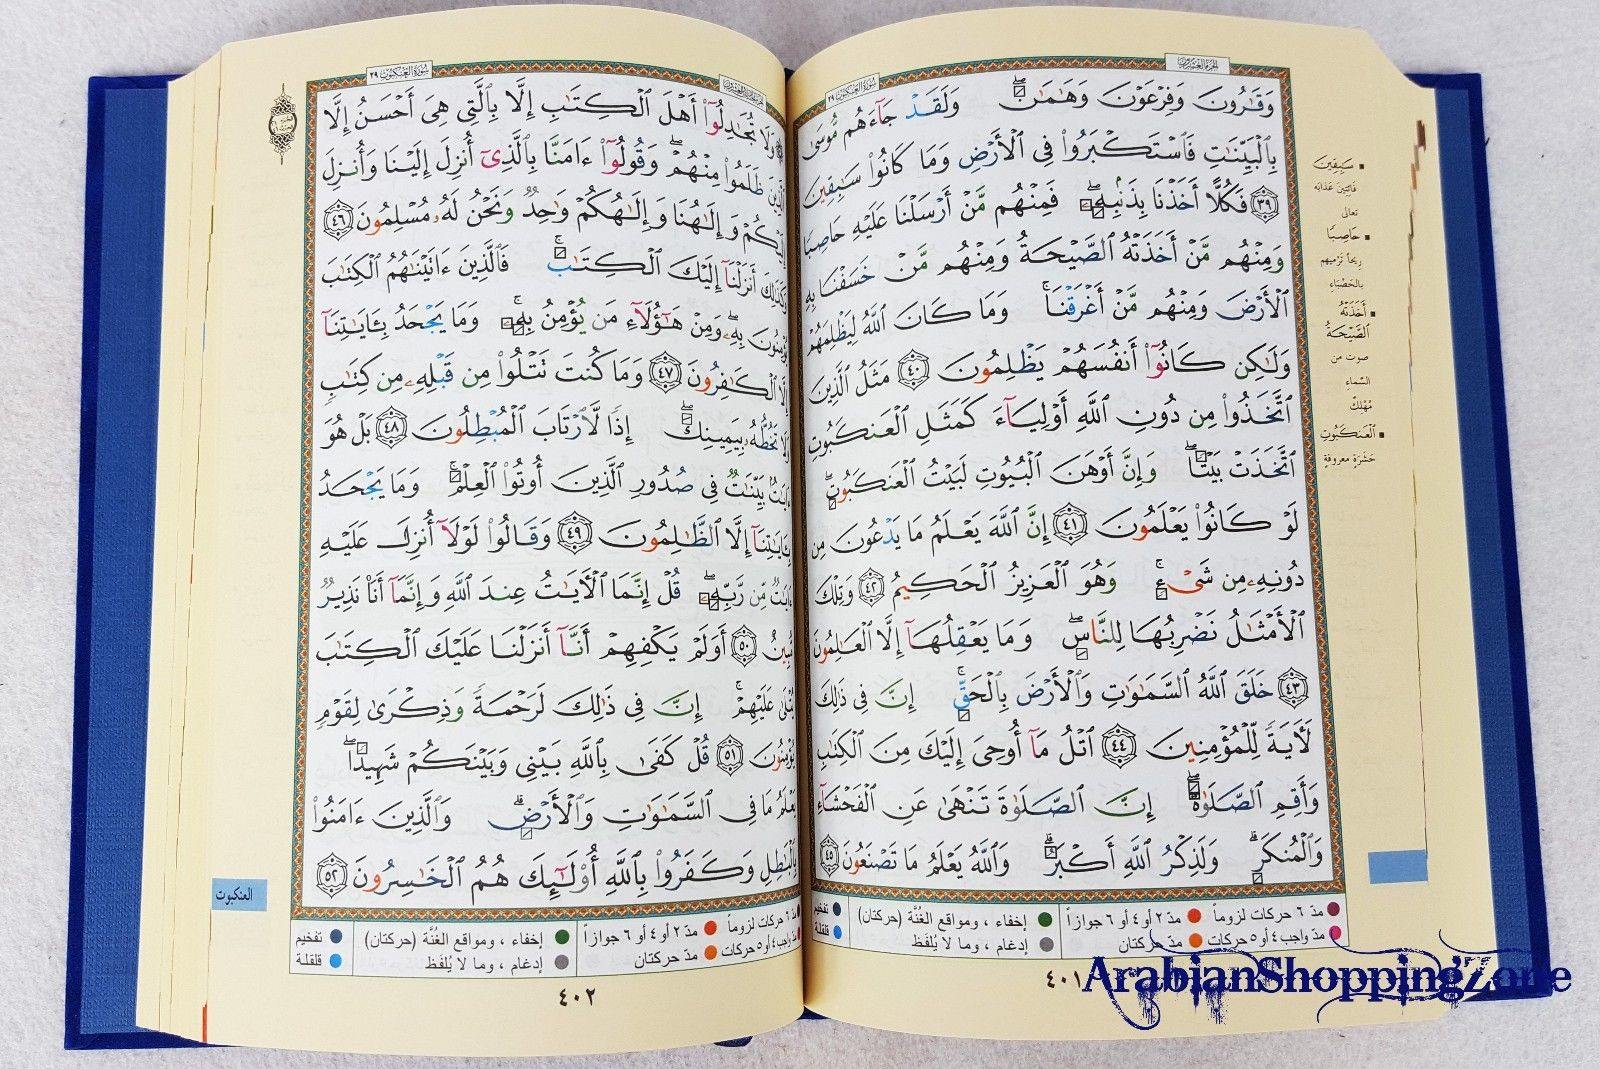 الجزء العشرون
سورة العنكبوت ٢٩
وَقَٰرُونَ وَفِرْعَوْنَ وَهَٰمَٰنَۖ وَلَقَدْ جَآءَهُم مُّوسَىٰ
بِٱلْبَيِّنَٰتِ فَٱسْتَكْبَرُوا۟ فِى ٱلْأَرْضِ وَمَا كَانُوا۟ سَٰبِقِينَ
٣٩ فَكُلًّا أَخَذْنَا بِذَنۢبِهِۦۖ فَمِنْهُم مَّنْ أَرْسَلْنَا عَلَيْهِ حَاصِبًا
وَمِنْهُم مَّنْ أَخَذَتْهُ ٱلصَّيْحَةُ وَمِنْهُم مَّنْ خَسَفْنَا بِهِ
ٱلْأَرْضَ وَمِنْهُم مَّنْ أَغْرَقْنَاۚ وَمَا كَانَ ٱللَّهُ لِيَظْلِمَهُمْ
وَلَٰكِن كَانُوٓا۟ أَنفُسَهُمْ يَظْلِمُونَ ٤٠ مَثَلُ ٱلَّذِينَ
ٱتَّخَذُوا۟ مِن دُونِ ٱللَّهِ أَوْلِيَآءَ كَمَثَلِ ٱلْعَنكَبُوتِ
ٱتَّخَذَتْ بَيْتًاۖ وَإِنَّ أَوْهَنَ ٱلْبُيُوتِ لَبَيْتُ ٱلْعَنكَبُوتِۖ
لَوْ كَانُوا۟ يَعْلَمُونَ ٤١ إِنَّ ٱللَّهَ يَعْلَمُ مَا يَدْعُونَ مِن
دُونِهِۦ مِن شَىْءٍۚ وَهُوَ ٱلْعَزِيزُ ٱلْحَكِيمُ ٤٢ وَتِلْكَ
ٱلْأَمْثَٰلُ نَضْرِبُهَا لِلنَّاسِۖ وَمَا يَعْقِلُهَآ إِلَّا ٱلْعَٰلِمُونَ
٤٣ خَلَقَ ٱللَّهُ ٱلسَّمَٰوَٰتِ وَٱلْأَرْضَ بِٱلْحَقِّۚ إِنَّ فِى ذَٰلِكَ
لَـَٔايَةً لِّلْمُؤْمِنِينَ ٤٤ ٱتْلُ مَآ أُوحِىَ إِلَيْكَ مِنَ ٱلْكِتَٰبِ
وَأَقِمِ ٱلصَّلَوٰةَۖ إِنَّ ٱلصَّلَوٰةَ تَنْهَىٰ عَنِ ٱلْفَحْشَآءِ
وَٱلْمُنكَرِۗ وَلَذِكْرُ ٱللَّهِ أَكْبَرُۗ وَٱللَّهُ يَعْلَمُ مَا تَصْنَعُونَ ٤٥
سَٰبِقِينَ
فائتين عذابه
تعالى
حَاصِبًا
ريحاً ترميهم
بالحصباء
أَخَذَتْهُ
ٱلصَّيْحَةُ
صوت من
السماء
مُهْلِكٌ
ٱلْعَنكَبُوتِ
حشرة معروفة
مدّ ٦ حركات لزوماً مدّ ٢ أو ٤ أو ٦ جوازاً إخفاء ، ومواقع الغُنَّة (حركتان) تفخيم
مدّ واجب ٤ أو ٥ حركات مدّ حركتان إدغام ، وما لا يُلفَظ قلقلة
٤٠١
سورة العنكبوت ٢٩
وَلَا تُجَٰدِلُوٓا۟ أَهْلَ ٱلْكِتَٰبِ إِلَّا بِٱلَّتِى هِىَ أَحْسَنُ إِلَّا
ٱلَّذِينَ ظَلَمُوا۟ مِنْهُمْۖ وَقُولُوٓا۟ ءَامَنَّا بِٱلَّذِىٓ أُنزِلَ إِلَيْنَا وَأُنزِلَ
إِلَيْكُمْ وَإِلَٰهُنَا وَإِلَٰهُكُمْ وَٰحِدٌ وَنَحْنُ لَهُۥ مُسْلِمُونَ ٤٦
وَكَذَٰلِكَ أَنزَلْنَآ إِلَيْكَ ٱلْكِتَٰبَۚ فَٱلَّذِينَ ءَاتَيْنَٰهُمُ ٱلْكِتَٰبَ
يُؤْمِنُونَ بِهِۦۖ وَمِنْ هَٰٓؤُلَآءِ مَن يُؤْمِنُ بِهِۦۚ وَمَا يَجْحَدُ بِـَٔايَٰتِنَآ
إِلَّا ٱلْكَٰفِرُونَ ٤٧ وَمَا كُنتَ تَتْلُوا۟ مِن قَبْلِهِۦ مِن كِتَٰبٍ
وَلَا تَخُطُّهُۥ بِيَمِينِكَۖ إِذًا لَّٱرْتَابَ ٱلْمُبْطِلُونَ ٤٨ بَلْ هُوَ
ءَايَٰتٌۢ بَيِّنَٰتٌ فِى صُدُورِ ٱلَّذِينَ أُوتُوا۟ ٱلْعِلْمَۚ وَمَا يَجْحَدُ
بِـَٔايَٰتِنَآ إِلَّا ٱلظَّٰلِمُونَ ٤٩ وَقَالُوا۟ لَوْلَآ أُنزِلَ عَلَيْهِ
ءَايَٰتٌ مِّن رَّبِّهِۦۖ قُلْ إِنَّمَا ٱلْـَٔايَٰتُ عِندَ ٱللَّهِ وَإِنَّمَآ أَنَا۠ نَذِيرٌ
مُّبِينٌ ٥٠ أَوَلَمْ يَكْفِهِمْ أَنَّآ أَنزَلْنَا عَلَيْكَ ٱلْكِتَٰبَ
يُتْلَىٰ عَلَيْهِمْۚ إِنَّ فِى ذَٰلِكَ لَرَحْمَةً وَذِكْرَىٰ لِقَوْمٍ
يُؤْمِنُونَ ٥١ قُلْ كَفَىٰ بِٱللَّهِ بَيْنِى وَبَيْنَكُمْ شَهِيدًاۖ
يَعْلَمُ مَا فِى ٱلسَّمَٰوَٰتِ وَٱلْأَرْضِۗ وَٱلَّذِينَ ءَامَنُوا۟
بِٱلْبَٰطِلِ وَكَفَرُوا۟ بِٱللَّهِ أُو۟لَٰٓئِكَ هُمُ ٱلْخَٰسِرُونَ ٥٢
العنكبوت
مدّ ٦ حركات لزوماً مدّ ٢ أو ٤ أو ٦ جوازاً إخفاء ، ومواقع الغُنَّة (حركتان) تفخيم
مدّ واجب ٤ أو ٥ حركات مدّ حركتان إدغام ، وما لا يُلفَظ قلقلة
٤٠٢
ArabianShoppingZone